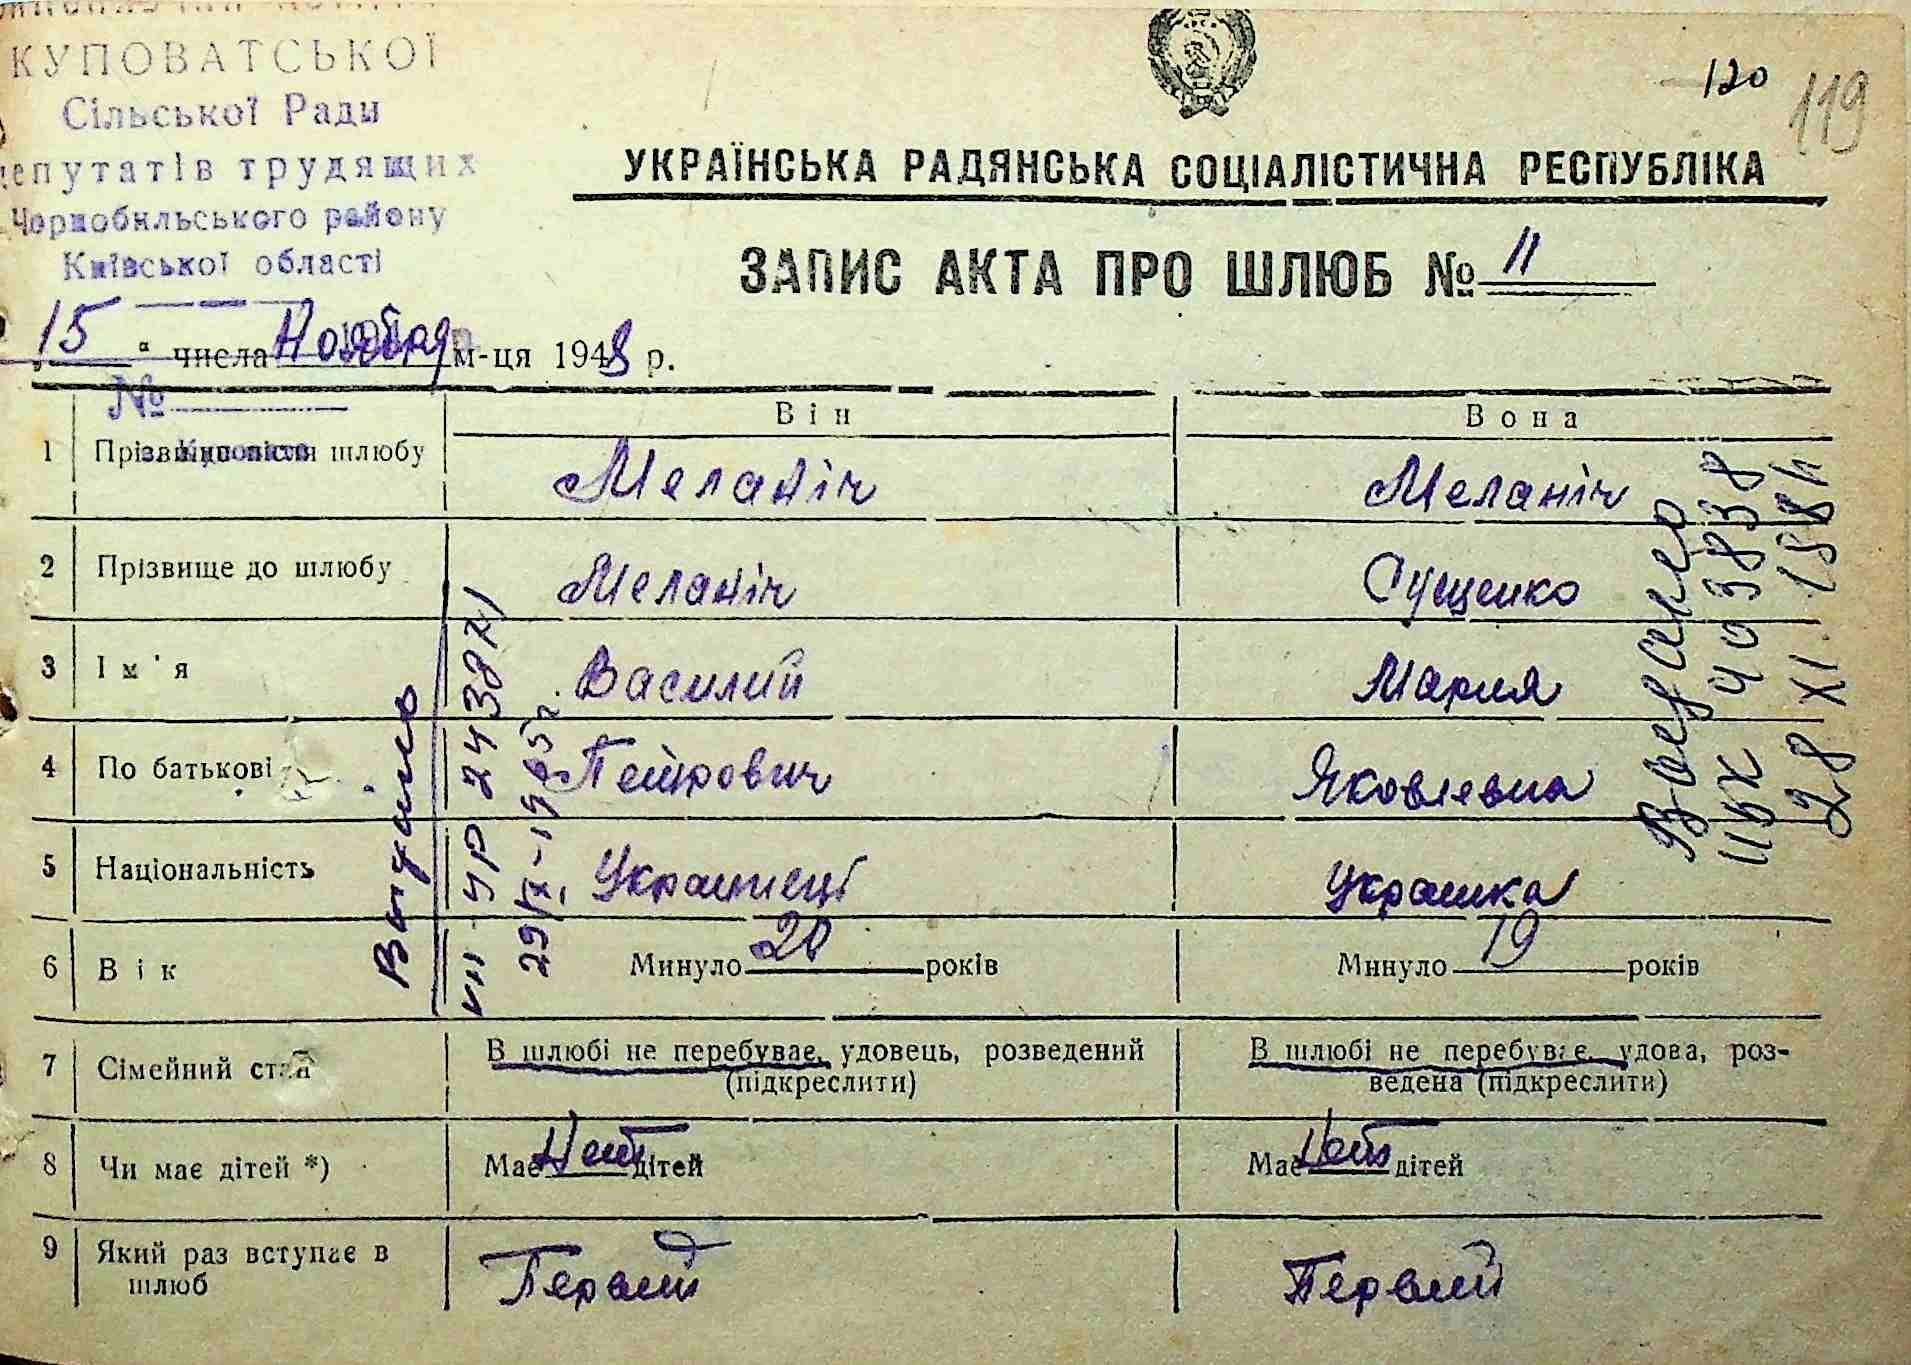 КУПОВАТСЬКОЇ
Сільської Ради
депутатів трудящих
Чорнобильського району
Київської області
120 119
УКРАЇНСЬКА РАДЯНСЬКА СОЦІАЛІСТИЧНА РЕСПУБЛІКА
ЗАПИС АКТА ПРО ШЛЮБ № 11
„15“ числа Ноября м-ця 1948 р.
№
Він Вона
1 Прізвище після шлюбу Меланіч Меланіч
2 Прізвище до шлюбу Меланіч Сущенко
3 Ім'я Василий Мария
4 По батькові Петрович Яковлевна
5 Національність Украинец Украинка
6 Вік Минуло 20 років Минуло 19 років
7 Сімейний стан В шлюбі не перебуває, удовець, розведений (підкреслити) В шлюбі не перебуває, удова, роз-
ведена (підкреслити)
8 Чи має дітей *) Має Нет дітей Має Нет дітей
9 Який раз вступає в Первый Первый
шлюб
УР 24387
28 XI